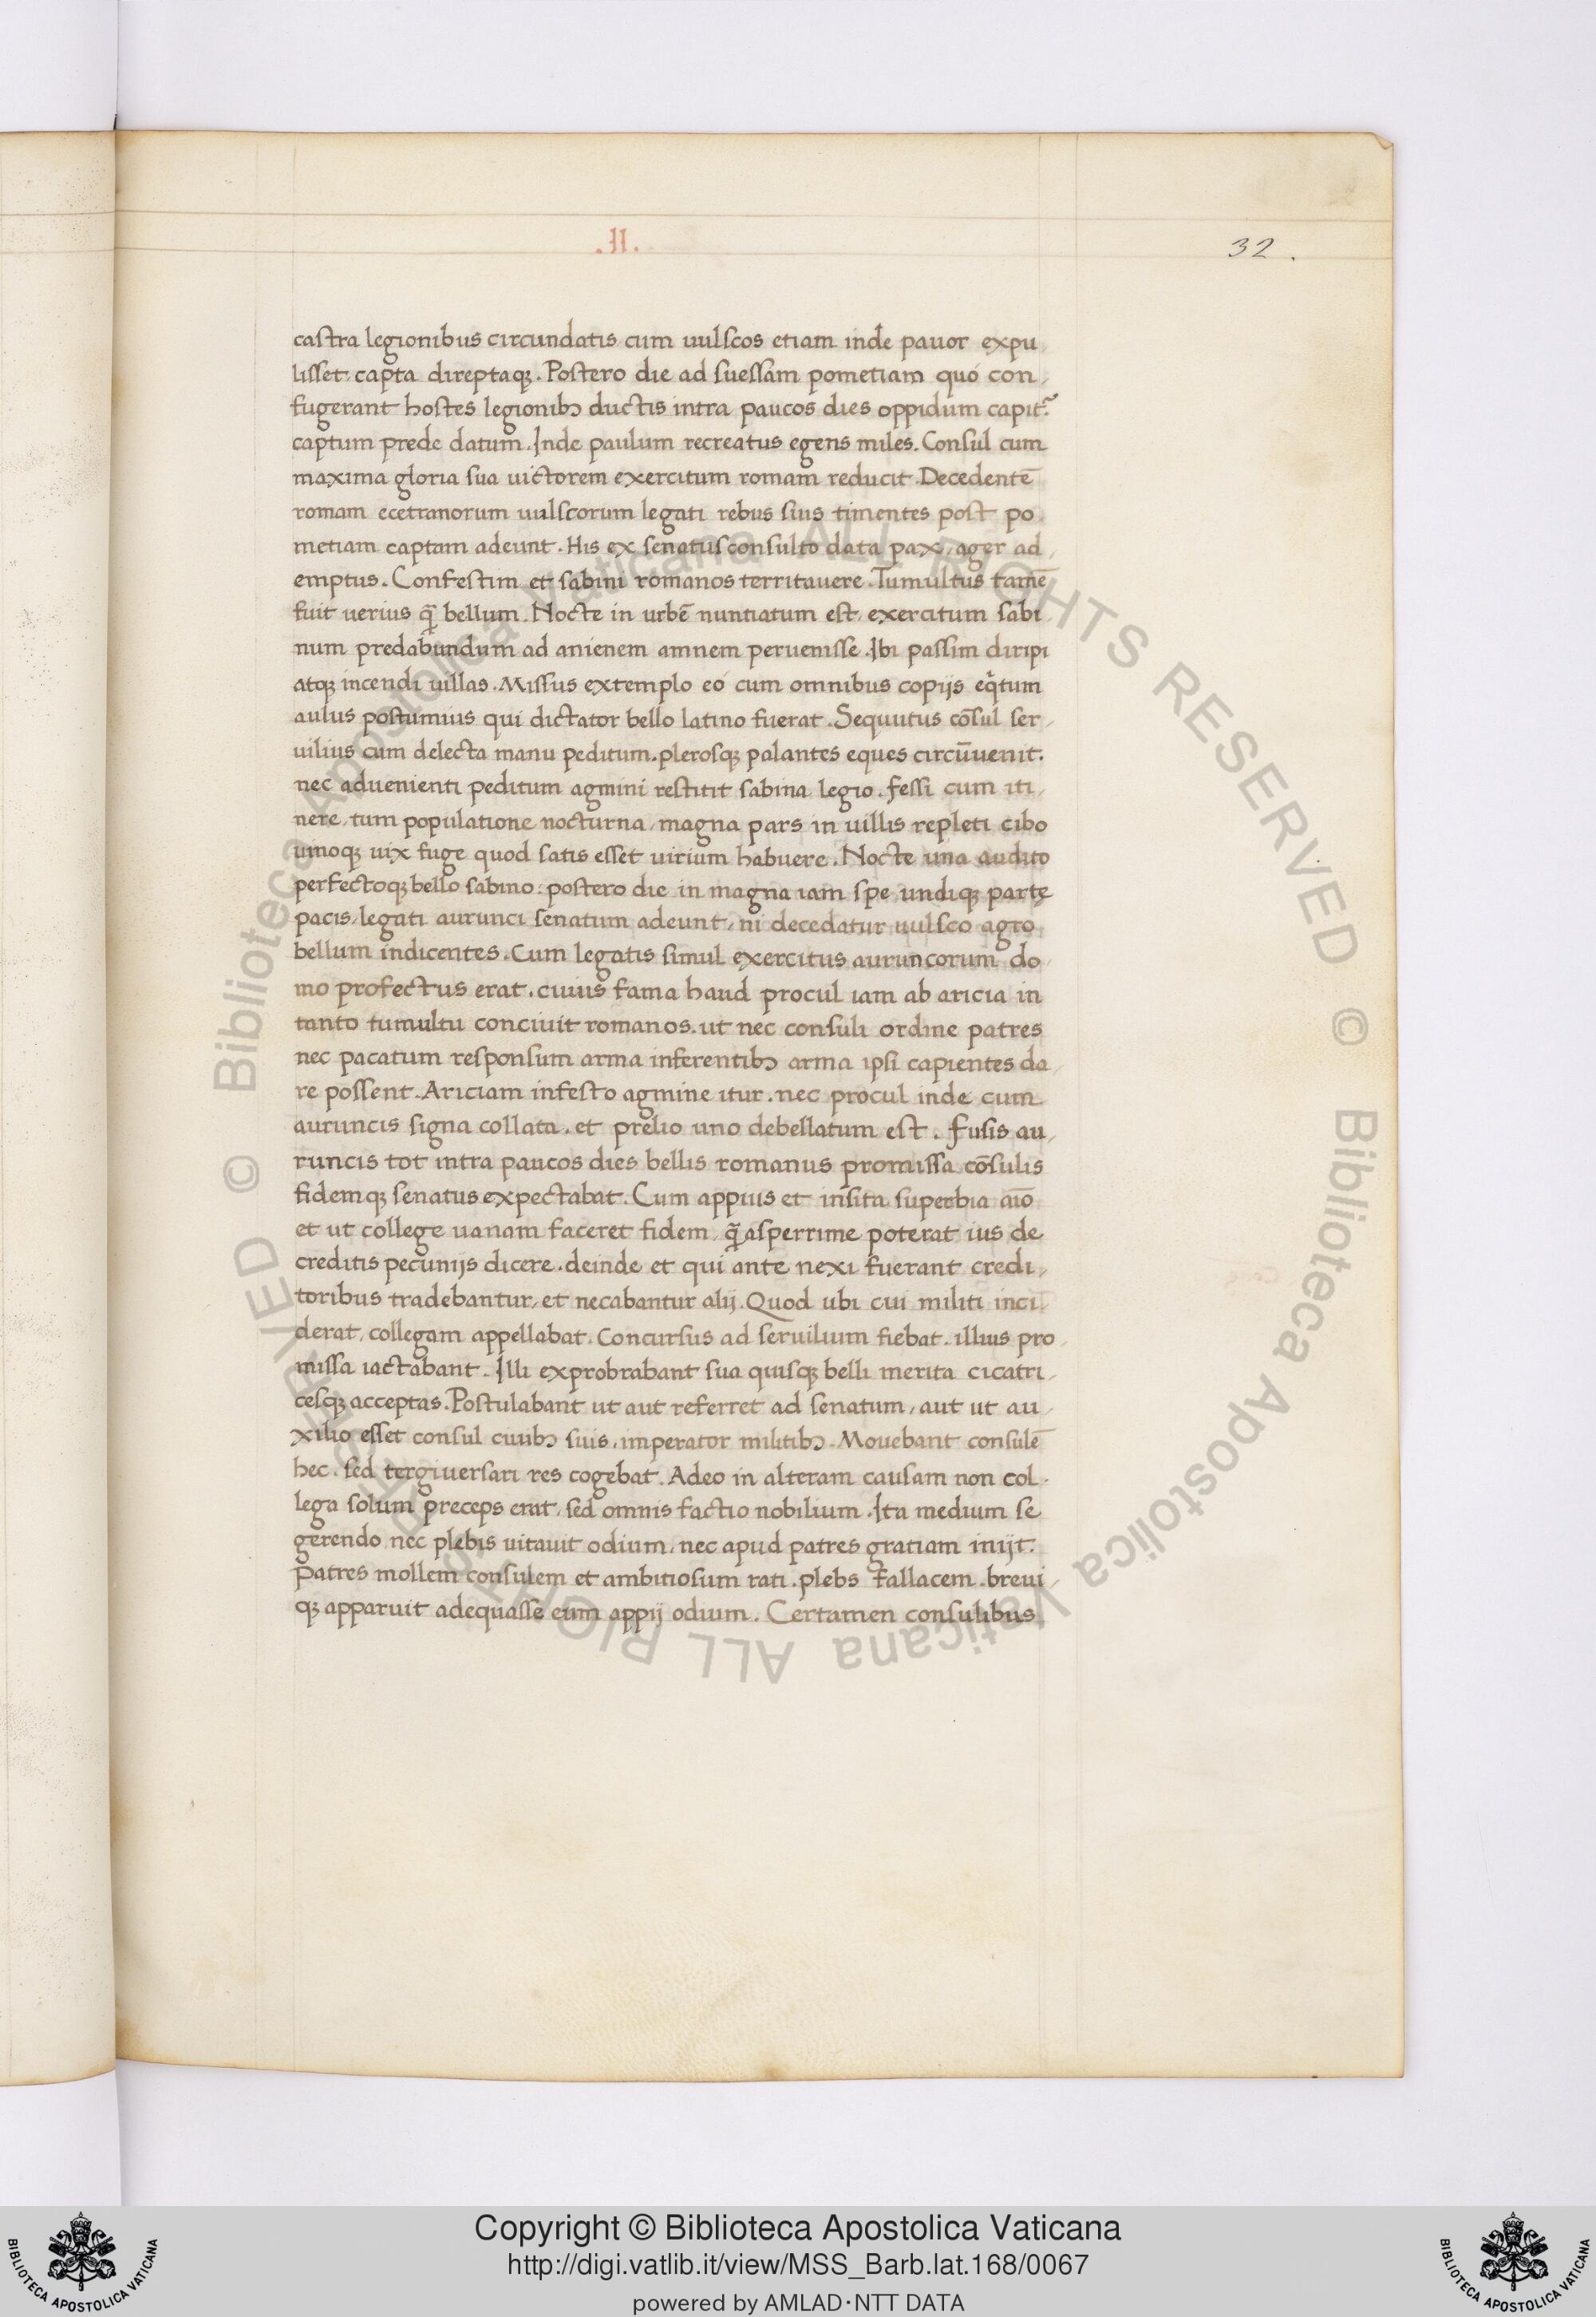 .II.
32.
castra legionibus circundatis cum uulscos etiam inde pauor expu,
lisset, capta direptaqꝫ. Postero die ad suessam pometiam quo con,
fugerant hostes legionibꝫ ductis intra paucos dies oppidum capit᷑.
captum prede datum. Inde paulum recreatus egens miles. Consul cum
maxima gloria sua uictorem exercitum romam reducit. Decedentē
romam ecetranorum uulscorum legati rebus suis timentes post po,
metiam captam adeunt. His ex senatusconsulto data pax, ager ad,
emptus. Confestim et sabini romanos territauere. Tumultus tamē
fuit uerius q̄ bellum. Nocte in urbē nuntiatum est, exercitum sabi,
num predabundum ad anienem amnem peruenisse. Ibi passim diripi
atqꝫ incendi uillas. Missus extemplo eo cum omnibus copijs eq̇tum
aulus postumius qui dictator bello latino fuerat. Sequutus cōsul ser,
uilius cum delecta manu peditum. plerosqꝫ palantes eques circūuenit.
nec aduenienti peditum agmini restitit sabina legio. fessi cum iti,
nere, tum populatione nocturna, magna pars in uillis repleti cibo
uinoqꝫ uix fuge quod satis esset uirium habuere. Nocte una audito
perfectoqꝫ bello sabino: postero die in magna iam spe undiqꝫ partę
pacis, legati aurunci senatum adeunt, ni decedatur uulsco agro
bellum indicentes. Cum legatis simul exercitus auruncorum do,
mo profectus erat. cuius fama haud procul iam ab aricia in
tanto tumultu conciuit romanos. ut nec consuli ordine patres
nec pacatum responsum arma inferentibꝫ arma ipsi capientes da,
re possent. Ariciam infesto agmine itur. nec procul inde cum
auruncis signa collata. et prelio uno debellatum est. Fusis au,
runcis tot intra paucos dies bellis romanus promissa cōsulis
fidemqꝫ senatus expectabat. Cum appius et insita superbia aīo
et ut college uanam faceret fidem, q̄ asperrime poterat ius de
creditis pecunijs dicere. deinde et qui ante nexi fuerant credi,
toribus tradebantur, et necabantur alij. Quod ubi cui militi inci
derat, collegam appellabat. Concursus ad seruilium fiebat. illius pro
missa iactabant. Illi exprobrabant sua quisqꝫ belli merita cicatri,
cesqꝫ acceptas. Postulabant ut aut referret ad senatum, aut ut au,
xilio esset consul ciuibꝫ suis, imperator militibꝫ. Mouebant consulē
hec. sed tergiuersari res cogebat. Adeo in alteram causam non col.
lega solum preceps erat, sed omnis factio nobilium. Ita medium se
gerendo nec plebis uitauit odium, nec apud patres gratiam inijt.
Patres mollem consulem et ambitiosum rati. plebs fallacem. breui,
qꝫ apparuit adequasse eum appij odium. Certamen consulibus
© Biblioteca Apostolica Vaticana ALL RIGHTS RESERVED © Biblioteca Apostolica Vaticana ALL RIGHTS RESERVED
Copyright © Biblioteca Apostolica Vaticana
http://digi.vatlib.it/view/MSS_Barb.lat.168/0067
powered by AMLAD·NTT DATA
BIBLIOTECA APOSTOLICA VATICANA
BIBLIOTECA APOSTOLICA VATICANA